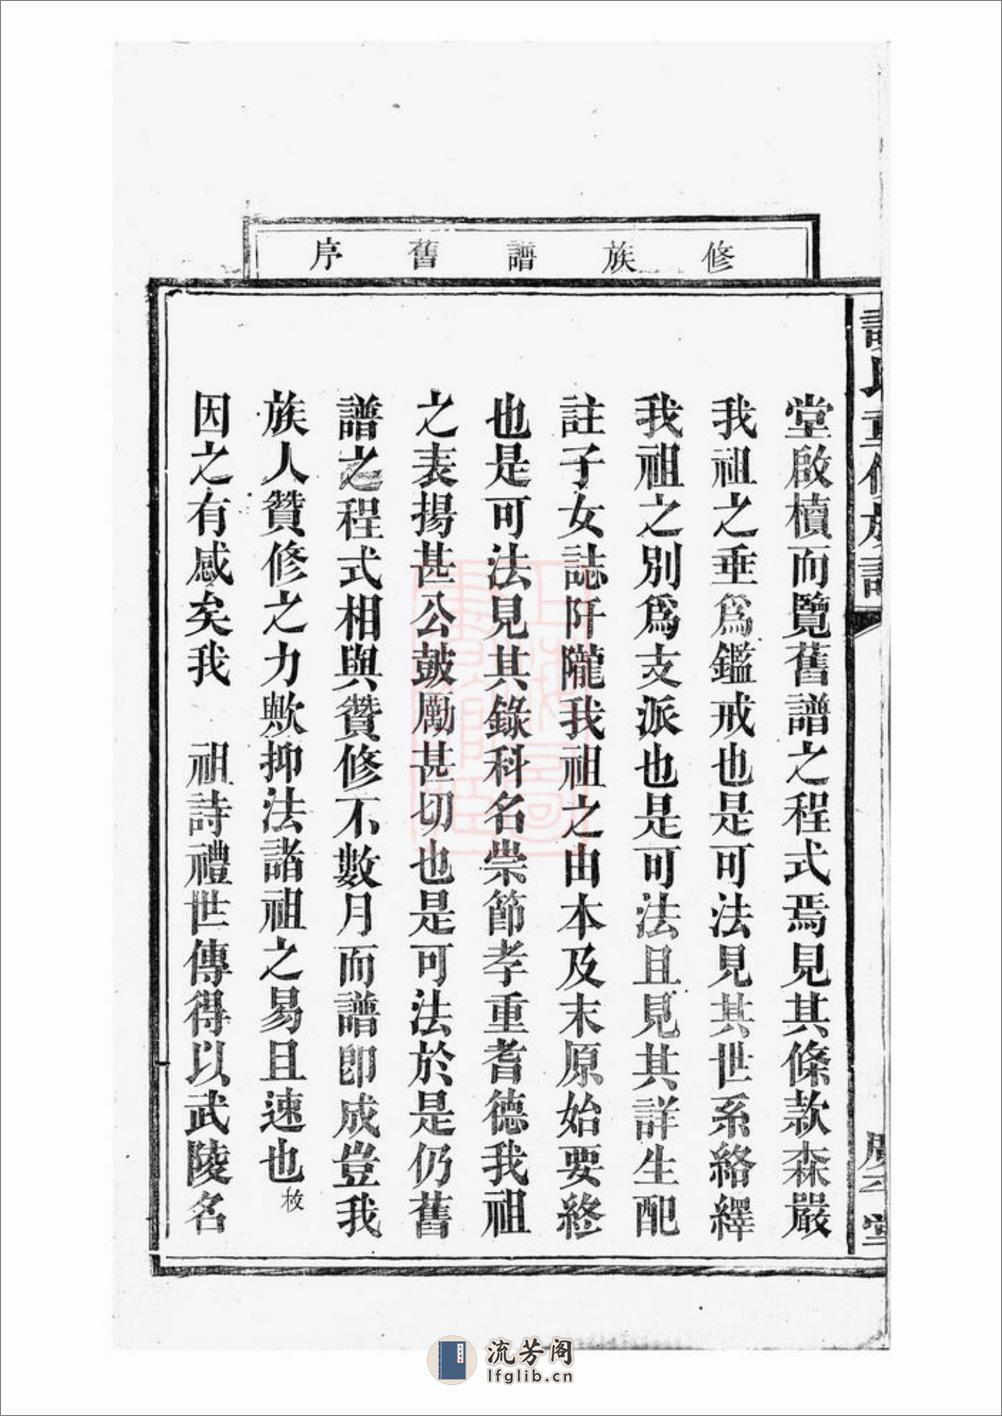 修族譜舊序
堂啟櫝而覽舊譜之程式焉見其條款森嚴
我祖之垂爲鑑戒也是可法見其世系絡繹
我祖之別爲支派也是可法且見其詳生配
註子女誌阡隴我祖之由本及末原始要終
也是可法見其錄科名崇節孝重耆德我祖
之表揚甚公鼓勵甚切也是可法於是仍舊
譜之程式相與贊修不數月而譜卽成豈我
族人贊修之力歟抑法諸祖之易且速也枚
因之有感矣我 祖詩禮世傳得以武陵名
流芳阁
lfglib.cn